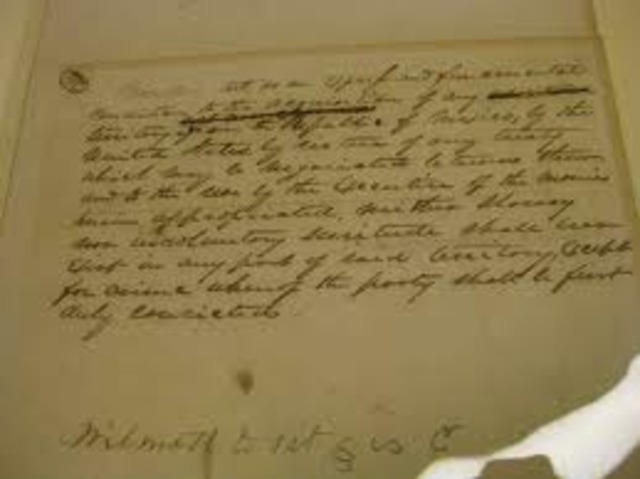 Provided that as an express and fundamental
condition to the acquisition of any
territory from the Republic of Mexico by the
United States by virtue of any treaty
which may be negotiated between them
and to the use by the Executive of the monies
herein appropriated, neither slavery
nor involuntary servitude shall ever
exist in any part of said territory, except
for crime whereof the party shall be first
duly convicted.
Wilmot to 1st §